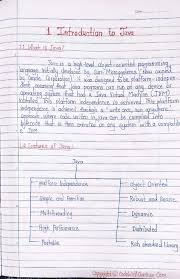 1 Introduction to Java
1.1 What is Java?
Java is a high-level object-oriented programming
language initially developed by Sun Microsystems (Now owned
by Oracle Corporation). It was designed to be platform-independent
meaning that Java programs can run on any device or
operating system that had a Java Virtual Machine (JVM)
installed. This platform independence is achieved
anywhere" where code written in Java can be compiled into
bytecode that is then executed on any system with a compatible
JVM.
1.2 Features of Java:
Java
Platform Independence
Object Oriented
Simple and Familiar
Robust and Secure
Multithreading
Dynamic
High Performance
Distributed
Portable
Rich standard library